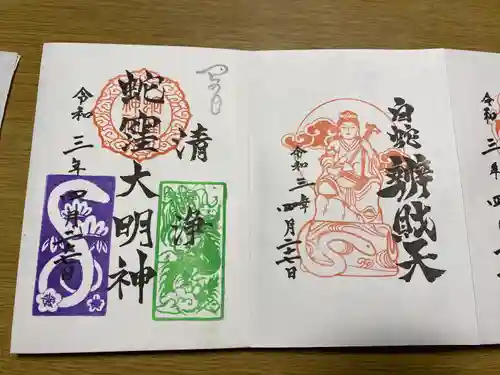 令和三年四
白蛇辨財天
令和三年
四月
清浄
蛇窪大明神
令和三年
四月